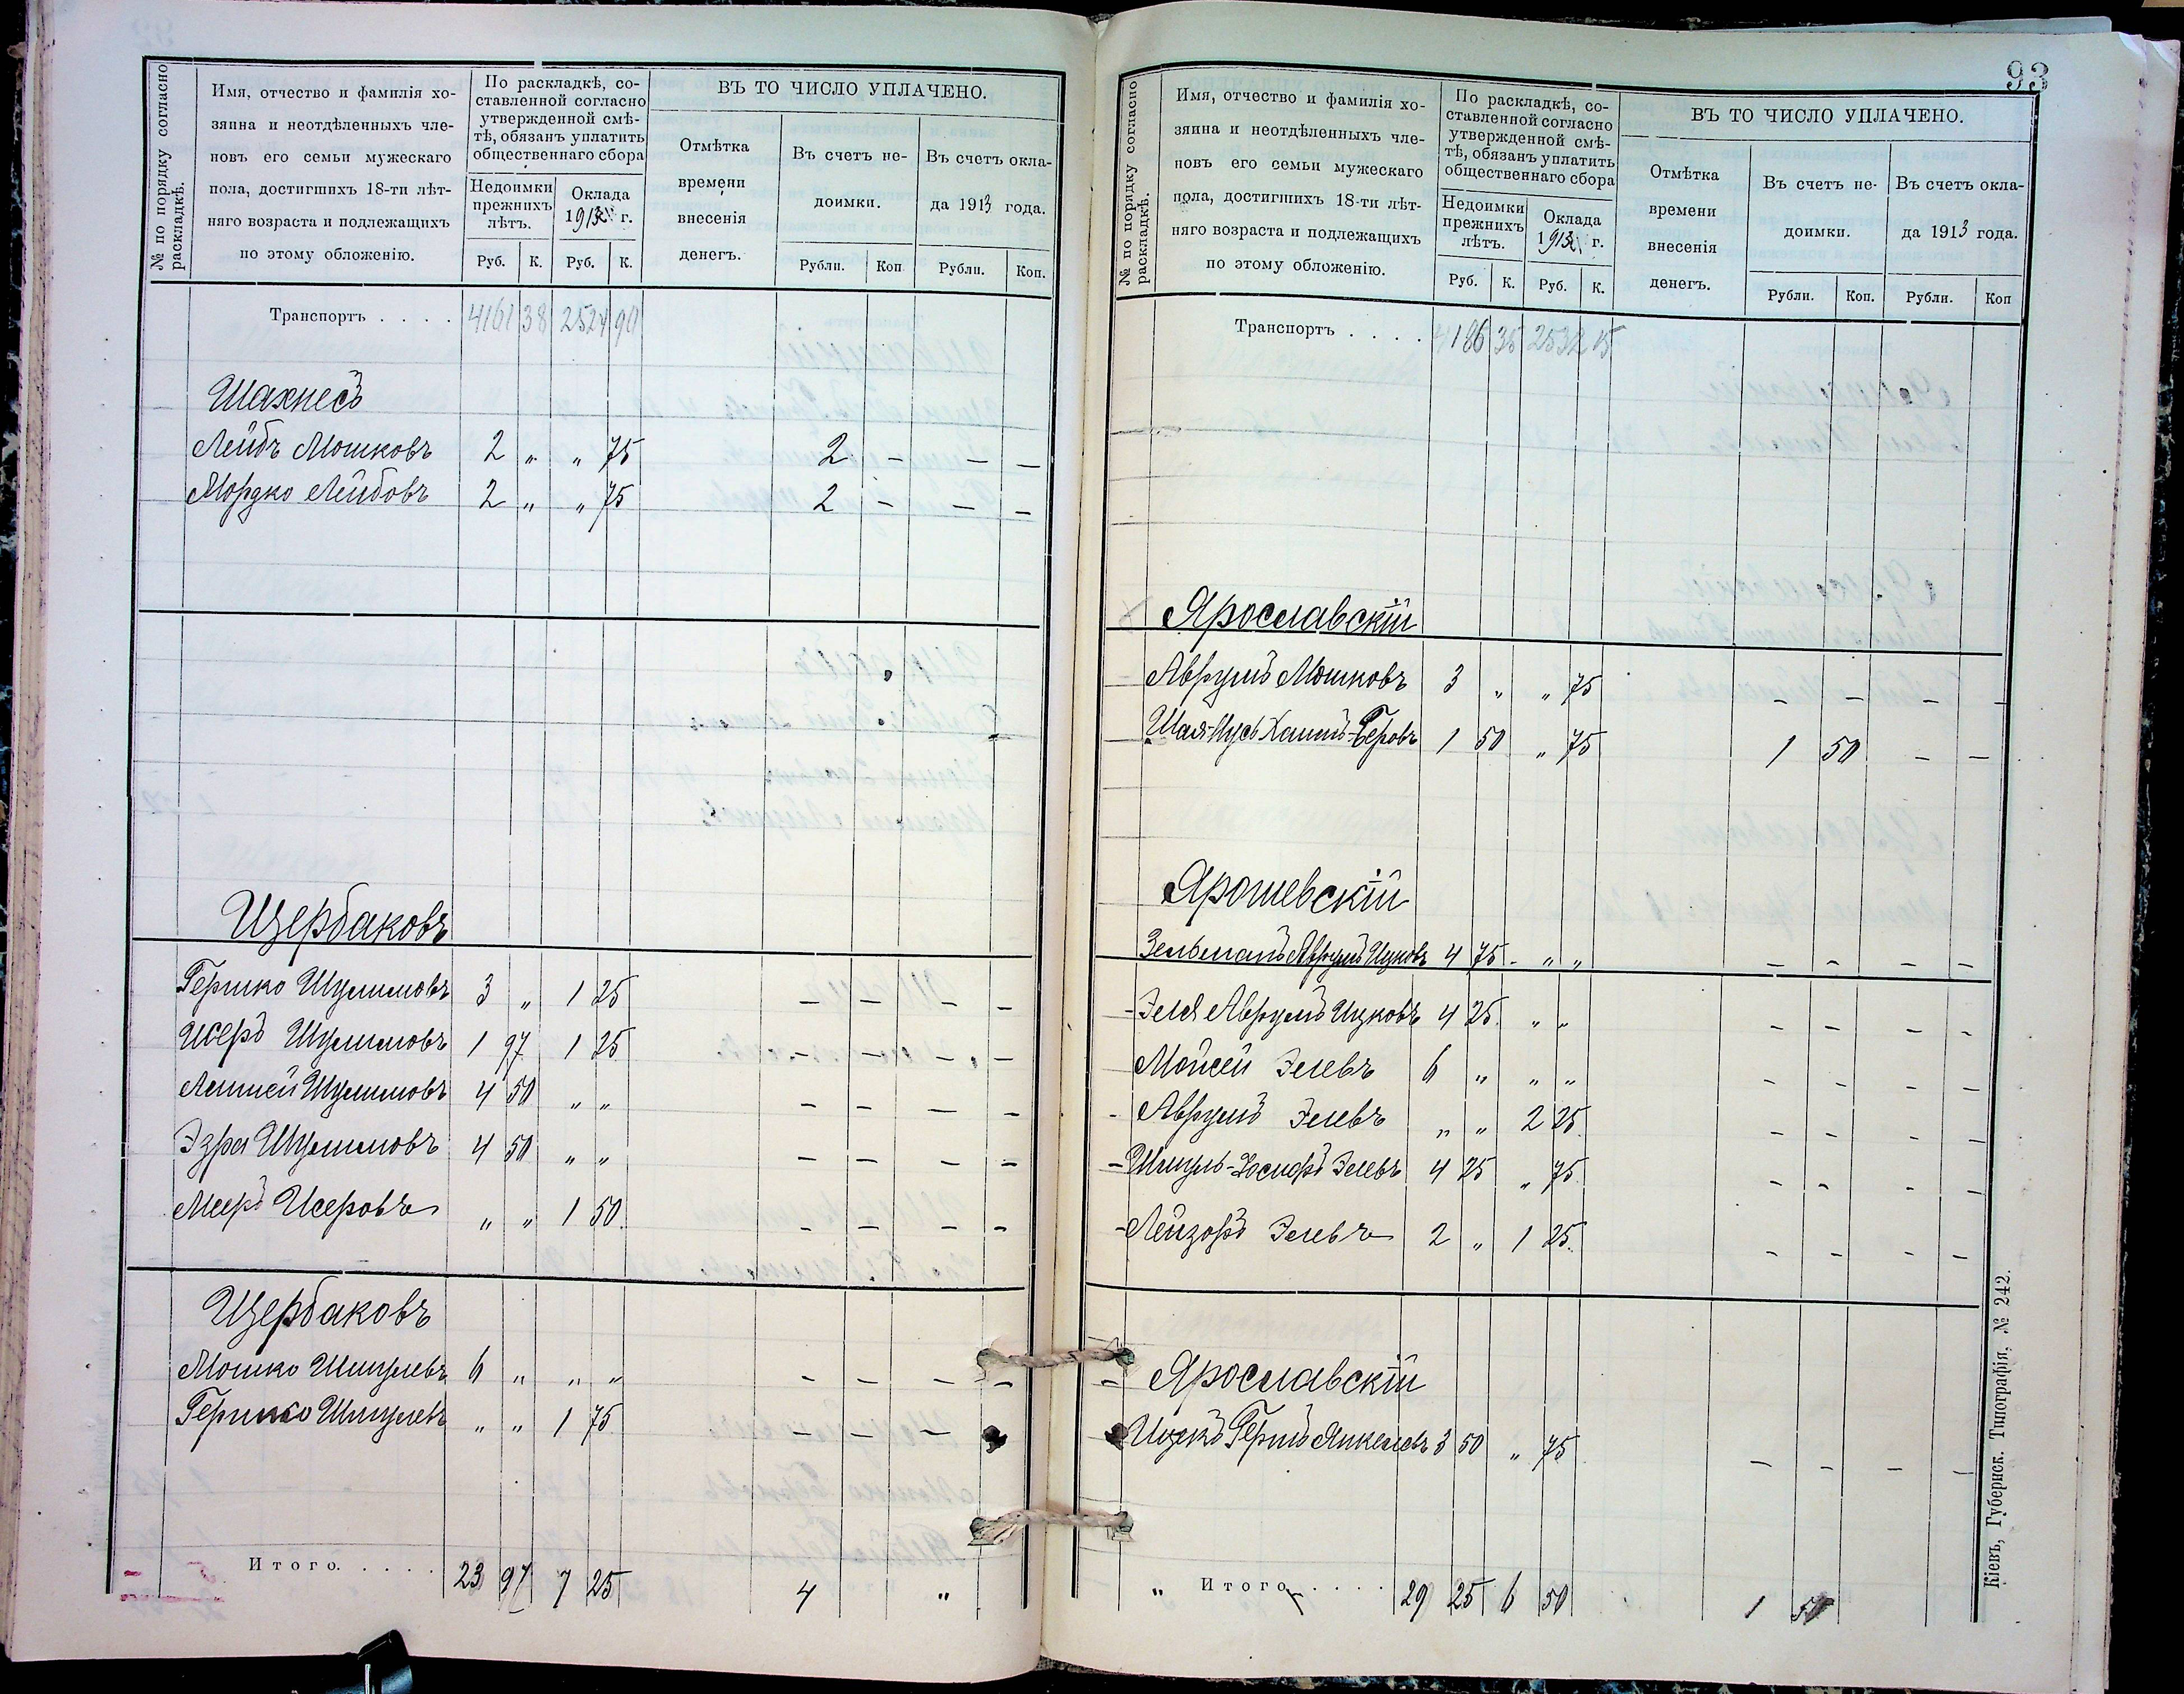 № по порядку согласно раскладкѣ.
Имя, отчество и фамилія хо-
зяина и неотдѣленныхъ чле-
новъ его семьи мужескаго
пола, достигшихъ 18-ти лѣт-
няго возраста и подлежащихъ
по этому обложенію.
По раскладкѣ, со-
ставленной согласно
утвержденной смѣ-
тѣ, обязанъ уплатить
общественнаго сбора
Недоимки
прежнихъ
лѣтъ.
Оклада
1913 г.
Руб. К. Руб. К.
ВЪ ТО ЧИСЛО УПЛАЧЕНО.
Отмѣтка
времени
внесенія
денегъ.
Въ счетъ не-
доимки.
Въ счетъ окла-
да 1913 года.
Рубли. Коп Рубли. Коп.
Транспортъ . . . . 4161 38 2524 90
Шахнесъ
Лейбъ Мошковъ 2 „ „ 75 2 — — —
Мордко Лейбовъ 2 „ „ 75 2 — — —
Щербаковъ
Гершко Шулимовъ 3 „ 1 25 — — — —
Исеръ Шулимовъ 1 97 1 25 — — — —
Шулимовъ 4 50 „ „ — — — —
Эзра Шулимовъ 4 50 „ „ — — — —
Мееръ Исеровъ „ „ 1 50 — — — —
Щербаковъ
Мошко Шмулевъ 6 „ „ „ — — — —
Гершко Шмулевъ „ „ 1 75 — — —
Итого. . . . . 23 97 7 25 4 „
93
№ по порядку согласно раскладкѣ.
Имя, отчество и фамилія хо-
зяина и неотдѣленныхъ чле-
новъ его семьи мужескаго
пола, достигшихъ 18-ти лѣт-
няго возраста и подлежащихъ
по этому обложенію.
По раскладкѣ, со-
ставленной согласно
утвержденной смѣ-
тѣ, обязанъ уплатить
общественнаго сбора
Недоимки
прежнихъ
лѣтъ.
Оклада
1913 г.
Руб. К. Руб. К.
ВЪ ТО ЧИСЛО УПЛАЧЕНО.
Отмѣтка
времени
внесенія
денегъ.
Въ счетъ не-
доимки.
Въ счетъ окла-
да 1913 года.
Рубли. Коп. Рубли. Коп
Транспортъ . . . . 4186 35 2532 15
Ярославскій
Аврумъ Мошковъ 3 „ „ 75 — — — —
Хаимъ-Беровъ 1 50 „ 75 1 50 — —
Ярошевскій
Зельманъ Аврумъ Ицковъ 4 75 - „ „ — — — —
- Зеля Аврумъ Ицковъ 4 25 „ „ — — — —
Мойсей Зелевъ 6 „ „ „ — — — —
- Аврумъ Зелевъ „ „ 2 25 — — — —
- Шмуль-Іосифъ Зелевъ 4 25 „ 75 — — — —
- Лейзоръ Зелевъ 2 „ 1 25 — — — —
- Ярославскій
Ицекъ Гершъ Янкелевъ 3 50 „ 75 — — — —
„ Итого . . . . 29 25 6 50 1 50
Кіевъ, Губернск. Типографія, № 242.